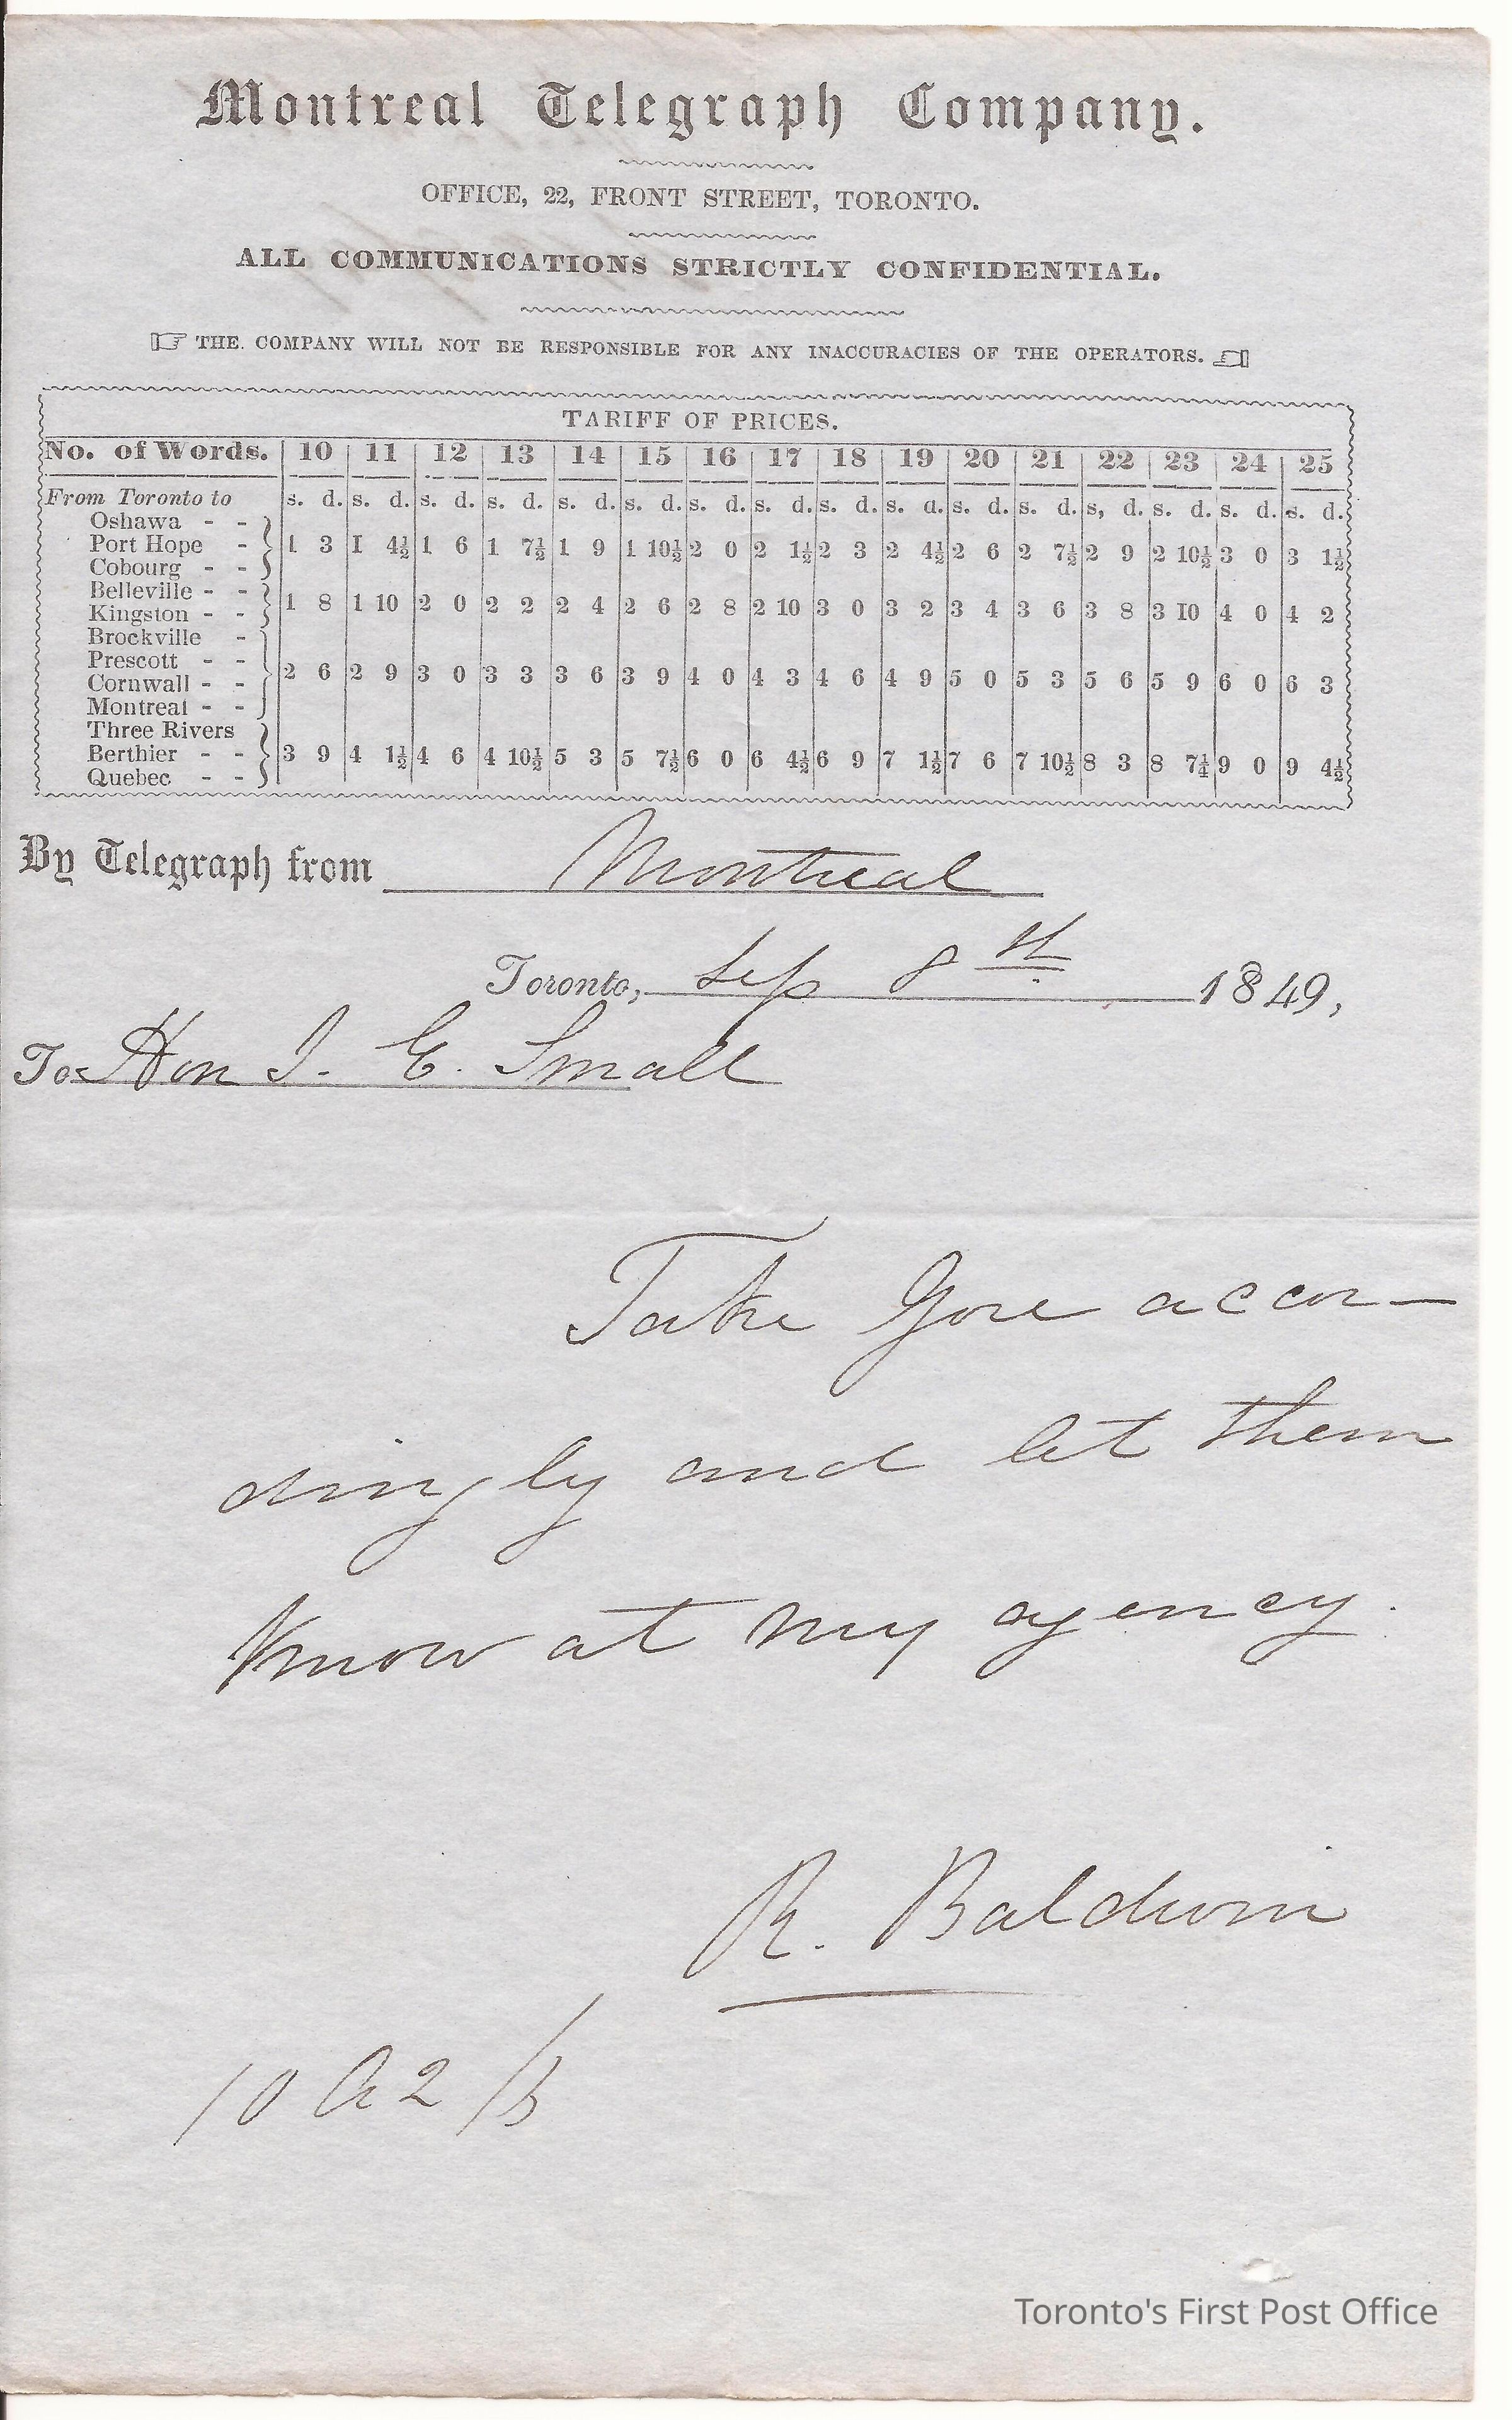 Montreal Telegraph Company.
OFFICE, 22, FRONT STREET, TORONTO.
ALL COMMUNICATIONS STRICTLY CONFIDENTIAL.
☞ THE. COMPANY WILL NOT BE RESPONSIBLE FOR ANY INACCURACIES OF THE OPERATORS. ☜
TARIFF OF PRICES.
No. of Words. 10 11 12 13 14 15 16 17 18 19 20 21 22 23 24 25
From Toronto to s. d. s. d. s. d. s. d. s. d. s. d. s. d. s. d. s. d. s. d. s. d. s. d. s, d. s. d. s. d. s. d.
Oshawa - -
Port Hope - 1 3 1 4½ 1 6 1 7½ 1 9 1 10½ 2 0 2 1½ 2 3 2 4½ 2 6 2 7½ 2 9 2 10½ 3 0 3 1½
Cobourg - -
Belleville - -
Kingston - - 1 8 1 10 2 0 2 2 2 4 2 6 2 8 2 10 3 0 3 2 3 4 3 6 3 8 3 10 4 0 4 2
Brockville -
Prescott - -
Cornwall - - 2 6 2 9 3 0 3 3 3 6 3 9 4 0 4 3 4 6 4 9 5 0 5 3 5 6 5 9 6 0 6 3
Montreal - -
Three Rivers
Berthier - - 3 9 4 1½ 4 6 4 10½ 5 3 5 7½ 6 0 6 4½ 6 9 7 1½ 7 6 7 10½ 8 3 8 7¼ 9 0 9 4½
Quebec - -
By Telegraph from Montreal
Toronto, Sep 8th 1849,
To Hon J. E. Small
Take Gore accor-
dingly and let them
Know at my agency.
R. Baldwin
10 a 2/3
Toronto's First Post Office